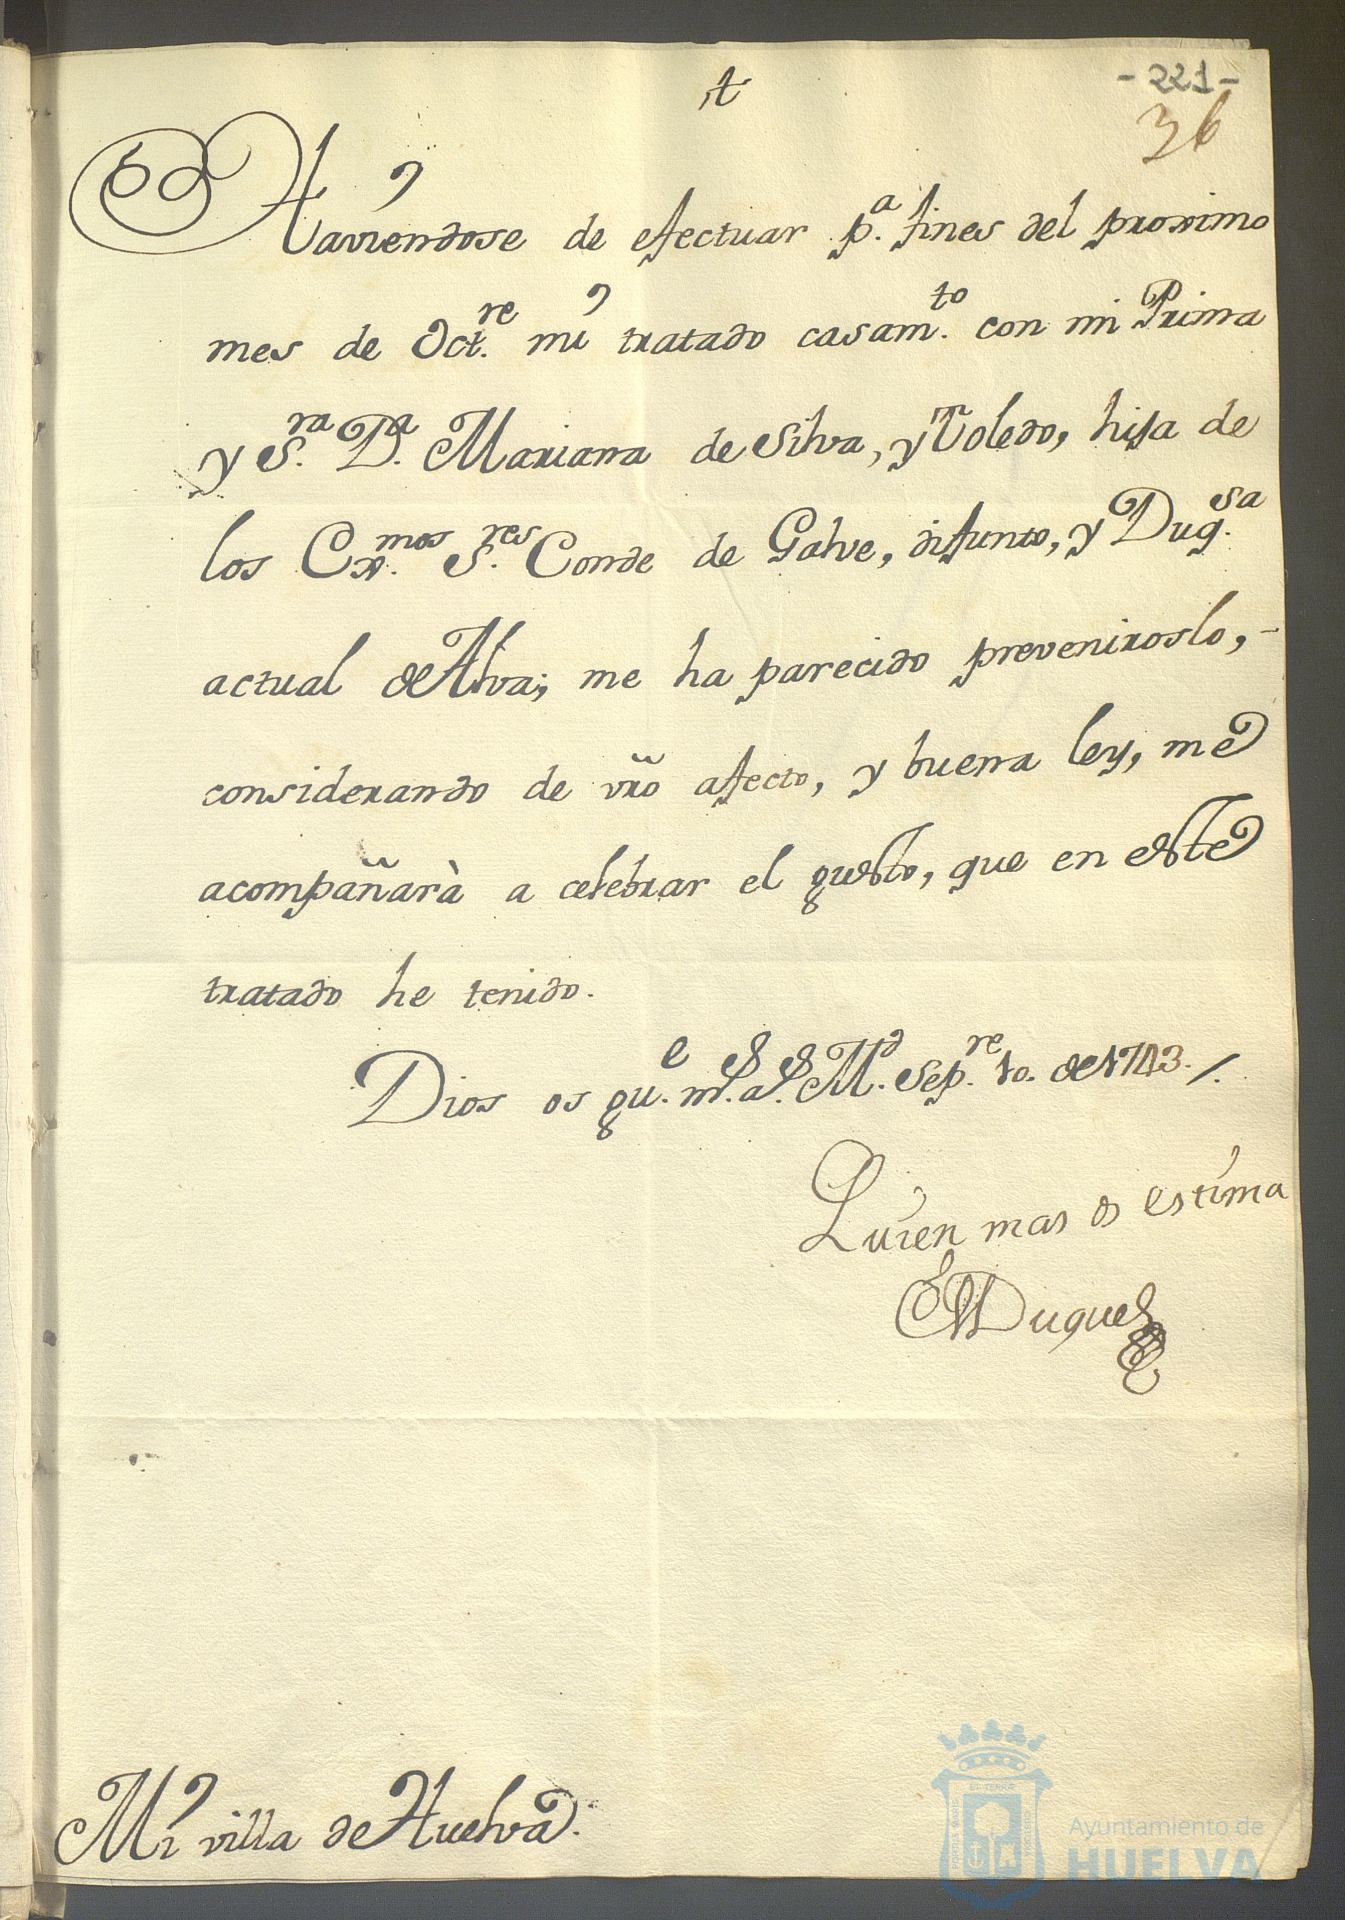 - 221 -
36
Haviendose de efectuar p.ª fines del proximo
mes de Oct.re mi tratado casam.to con mi Prima
y S.ra D.ª Mariana de Silva, y Toledo, hija de
los Ex.mos S.res Conde de Galve, difunto, y Duq.sa
actual de Alva; me ha parecido preveniroslo, -
considerando de vr̃o afecto, y buena ley, me
acompañarà a celebrar el gusto, que en este
tratado he tenido.
Dios os gu.e m.s a.s M.d Sep.re 10. de 1743. /.
Quien mas os estima
El Duque
Mi villa de Huelva.
ET TERRÆ
PORTUS MARIS
CUSTODIA
Ayuntamiento de
HUELVA